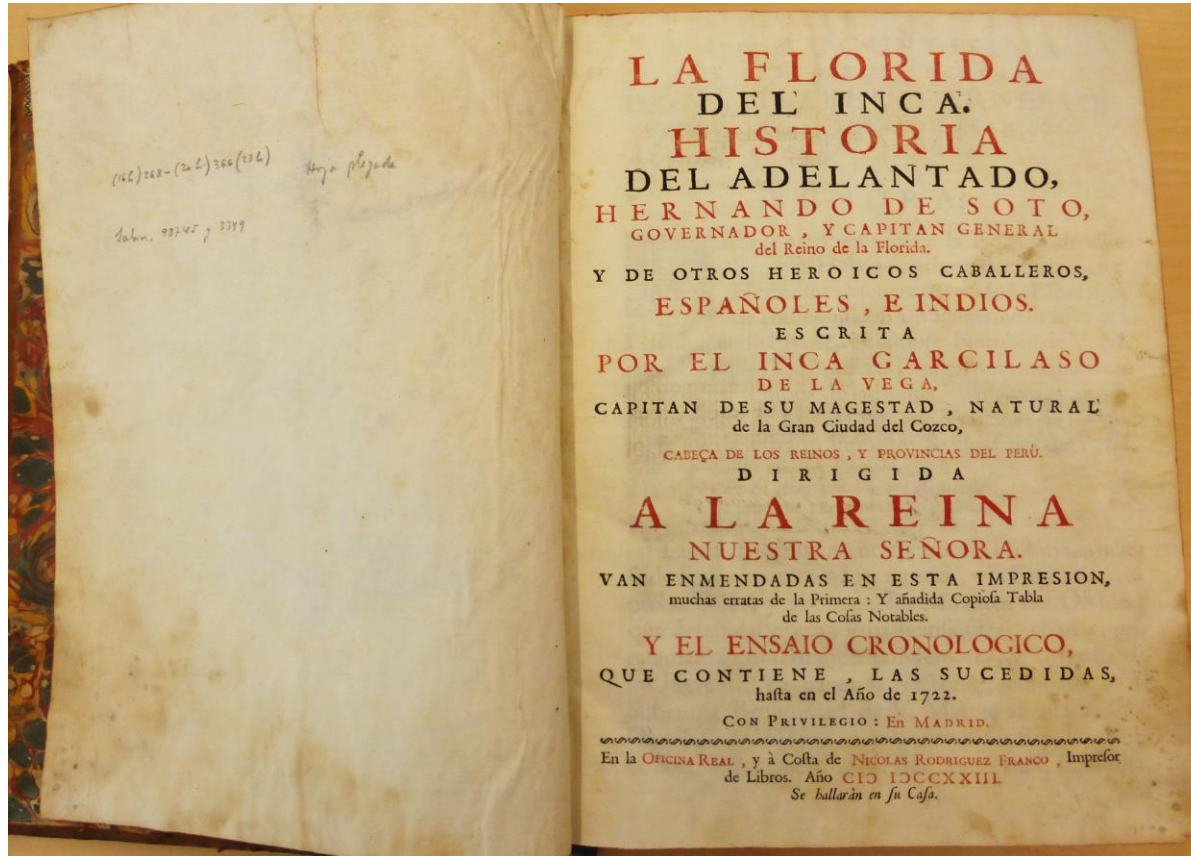 (16h) 268-(20h) 366 (23h)
Hoja plegada
98745 y 3349
LA FLORIDA
DEL INCA.
HISTORIA
DEL ADELANTADO,
HERNANDO DE SOTO,
GOVERNADOR, Y CAPITAN GENERAL
del Reino de la Florida.
Y DE OTROS HEROICOS CABALLEROS,
ESPAÑOLES, E INDIOS.
ESCRITA
POR EL INCA GARCILASO
DE LA VEGA,
CAPITAN DE SU MAGESTAD, NATURAL
de la Gran Ciudad del Cozco,
CABEÇA DE LOS REINOS, Y PROVINCIAS DEL PERÙ.
DIRIGIDA
A LA REINA
NUESTRA SEÑORA.
VAN ENMENDADAS EN ESTA IMPRESION,
muchas erratas de la Primera : Y añadida Copioſa Tabla
de las Coſas Notables.
Y EL ENSAIO CRONOLOGICO,
QUE CONTIENE, LAS SUCEDIDAS,
haſta en el Año de 1722.
CON PRIVILEGIO : En MADRID.
En la OFICINA REAL, y à Coſta de NICOLAS RODRIGUEZ FRANCO, Impreſor
de Libros. Año CIↃ IↃCCXXIII.
Se hallaràn en ſu Caſa.